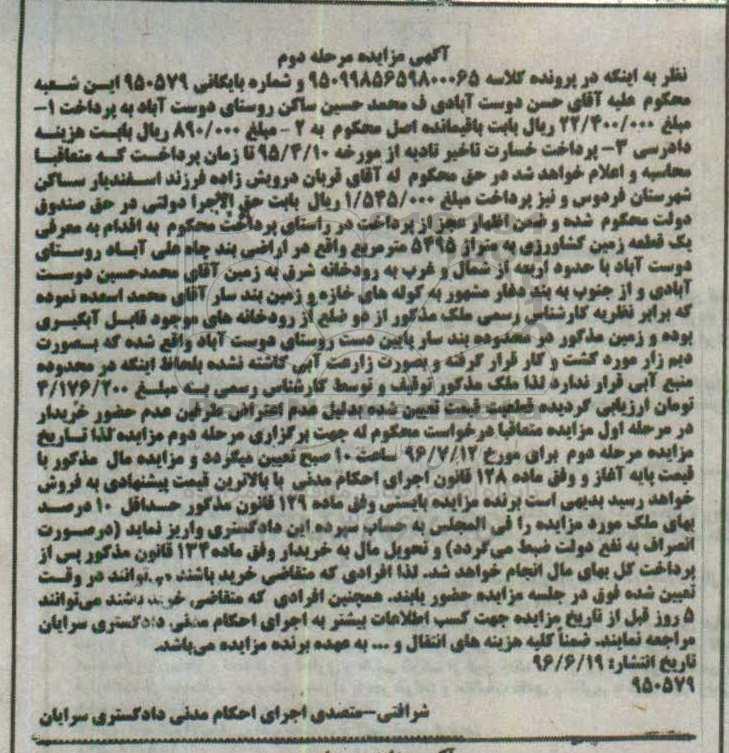 آگهی مزایده مرحله دوم
نظر به اینکه در پرونده کلاسه ۹۵۰۹۹۸۵۶۵۹۸۰۰۰۶۵ و شماره بایگانی ۹۵۰۵۷۹ ایـن شـعبه
محکوم علیه آقای حسن دوست آبادی ف محمد حسین ساکن روستای دوست آباد به پرداخت ۱-
مبلغ ۲۲/۴۰۰/۰۰۰ ریال بابت باقیمانده اصل محکوم به ۲ - مبلغ ۸۹۰/۰۰۰ ریال بابت هزینـه
دادرسی ۳- پرداخت خسارت تاخیر تادیه از مورخه ۹۵/۴/۱۰ تا زمان پرداخـت کـه متعاقبـا
محاسبه و اعلام خواهد شد در حق محکوم له آقای قربان درویش زاده فرزند اسـفندیار سـاکن
شهرستان فردوس و نیز پرداخت مبلغ ۱/۵۴۵/۰۰۰ ریال بابت حق الاجرا دولتی در حق صندوق
دولت محکوم شده و ضمن اظهار عجز از پرداخت در راستای پرداخت محکوم به اقدام به معرفی
یک قطعه زمین کشاورزی به متراژ ۵۴۹۵ مترمربع واقع در اراضی بند چاه علی آبـاد روسـتای
دوست آباد با حدود اربعه از شمال و غرب به رودخانه شرق به زمین آقای محمدحسین دوسـت
آبادی و از جنوب به بند دغار مشهور به کوله های خازه و زمین بند سار آقای محمد اسعده نموده
که برابر نظریه کارشناس رسمی ملک مذکور از دو ضلع از رودخانه های موجود قابـل آبگیـری
بوده و زمین مذکور در محدوده بند سار پایین دست روستای دوست آباد واقع شده که بـصورت
دیم زار مورد کشت و کار قرار گرفته و بصورت زارعت آبی کاشته نشده بلحاظ اینکه در محدوده
منبع آبی قرار ندارد لذا ملک مذکور توقیف و توسط کارشناس رسمی بـه مبلـغ ۴/۱۷۶/۲۰۰
تومان ارزیابی گردیده قطعیت قیمت تعیین شده بدلیل عدم اعتراض طرفین عدم حضور خریدار
در مرحله اول مزایده متعاقبا درخواست محکوم له جهت برگزاری مرحله دوم مزایده لذا تـاریخ
مزایده مرحله دوم برای مورخ ۹۶/۷/۱۲ ساعت ۱۰ صبح تعیین میگردد و مزایده مال مذکور با
قیمت پایه آغاز و وفق ماده ۱۲۸ قانون اجرای احکام مدنی با بالاترین قیمت پیشنهادی به فروش
خواهد رسید بدیهی است برنده مزایده بایستی وفق ماده ۱۲۹ قانون مذکور حـداقل ۱۰ درصـد
بهای ملک مورد مزایده را فی المجلس به حساب سپرده این دادگستری واریز نماید (درصـورت
انصراف به نفع دولت ضبط می‌گردد) و تحویل مال به خریدار وفق ماده ۱۳۴ قانون مذکور پس از
پرداخت کل بهای مال انجام خواهد شد. لذا افرادی که متقاضی خرید باشند می‌توانند در وقـت
تعیین شده فوق در جلسه مزایده حضور یابند. همچنین افرادی که متقاضی خرید باشند می‌توانند
۵ روز قبل از تاریخ مزایده جهت کسب اطلاعات بیشتر به اجرای احکام مدنی دادگستری سرایان
مراجعه نمایند. ضمناً کلیه هزینه های انتقال و ... به عهده برنده مزایده می‌باشد.
تاریخ انتشار: ۹۶/۶/۱۹
۹۵۰۵۷۹
شرافتی-متصدی اجرای احکام مدنی دادگستری سرایان